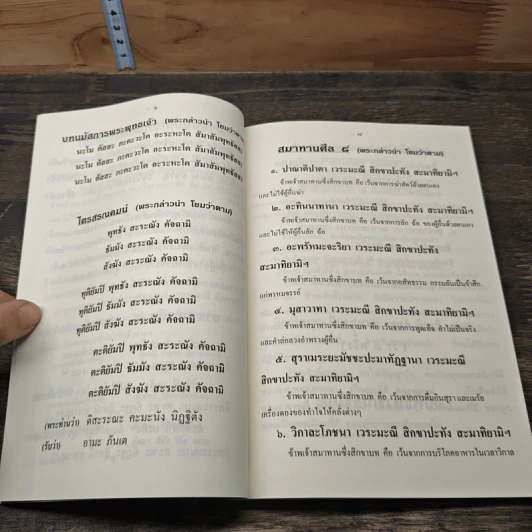 ๖
บทนมัสการพระพุทธเจ้า (พระกล่าวนำ โยมว่าตาม)
นะโม ตัสสะ ภะคะวะโต อะระหะโต สัมมาสัมพุทธัสสะ
นะโม ตัสสะ ภะคะวะโต อะระหะโต สัมมาสัมพุทธัสสะ
นะโม ตัสสะ ภะคะวะโต อะระหะโต สัมมาสัมพุทธัสสะ
ไตรสรณคมน์ (พระกล่าวนำ โยมว่าตาม)
พุทธัง สะระณัง คัจฉามิ
ธัมมัง สะระณัง คัจฉามิ
สังฆัง สะระณัง คัจฉามิ
ทุติยัมปิ พุทธัง สะระณัง คัจฉามิ
ทุติยัมปิ ธัมมัง สะระณัง คัจฉามิ
ทุติยัมปิ สังฆัง สะระณัง คัจฉามิ
ตะติยัมปิ พุทธัง สะระณัง คัจฉามิ
ตะติยัมปิ ธัมมัง สะระณัง คัจฉามิ
ตะติยัมปิ สังฆัง สะระณัง คัจฉามิ
(พระท่านว่า) ติสะระณะ คะมะนัง นิฏฐิตัง
(รับว่า) อามะ ภันเต
๗
สมาทานศีล ๘ (พระกล่าวนำ โยมว่าตาม)
๑. ปาณาติปาตา เวระมะณี สิกขาปะทัง สะมาทิยามิฯ
ข้าพเจ้าสมาทานซึ่งสิกขาบท คือ เว้นจากการฆ่าสัตว์ด้วยตนเอง
และไม่ใช้ให้ผู้อื่นฆ่า
๒. อะทินนาทานา เวระมะณี สิกขาปะทัง สะมาทิยามิฯ
ข้าพเจ้าสมาทานซึ่งสิกขาบท คือ เว้นจากการลัก ฉ้อ ของผู้อื่นด้วยตนเอง
และไม่ใช้ให้ผู้อื่นลัก ฉ้อ
๓. อะพรัหมะจะริยา เวระมะณี สิกขาปะทัง
สะมาทิยามิฯ
ข้าพเจ้าสมาทานซึ่งสิกขาบท คือ เว้นจากอสัทธรรม กรรมอันเป็นข้าศึก
แก่พรหมจรรย์
๔. มุสาวาทา เวระมะณี สิกขาปะทัง สะมาทิยามิฯ
ข้าพเจ้าสมาทานซึ่งสิกขาบท คือ เว้นจากการพูดเท็จ คำไม่เป็นจริง
และคำล่อลวงอำพรางผู้อื่น
๕. สุราเมระยะมัชชะปะมาทัฏฐานา เวระมะณี
สิกขาปะทัง สะมาทิยามิฯ
ข้าพเจ้าสมาทานซึ่งสิกขาบท คือ เว้นจากการดื่มกินสุรา และเมรัย
เครื่องดองของทำใจให้คลั่งไคล้ต่างๆ
๖. วิกาละโภชนา เวระมะณี สิกขาปะทัง สะมาทิยามิฯ
ข้าพเจ้าสมาทานซึ่งสิกขาบท คือ เว้นจากการบริโภคอาหารในเวลาวิกาล